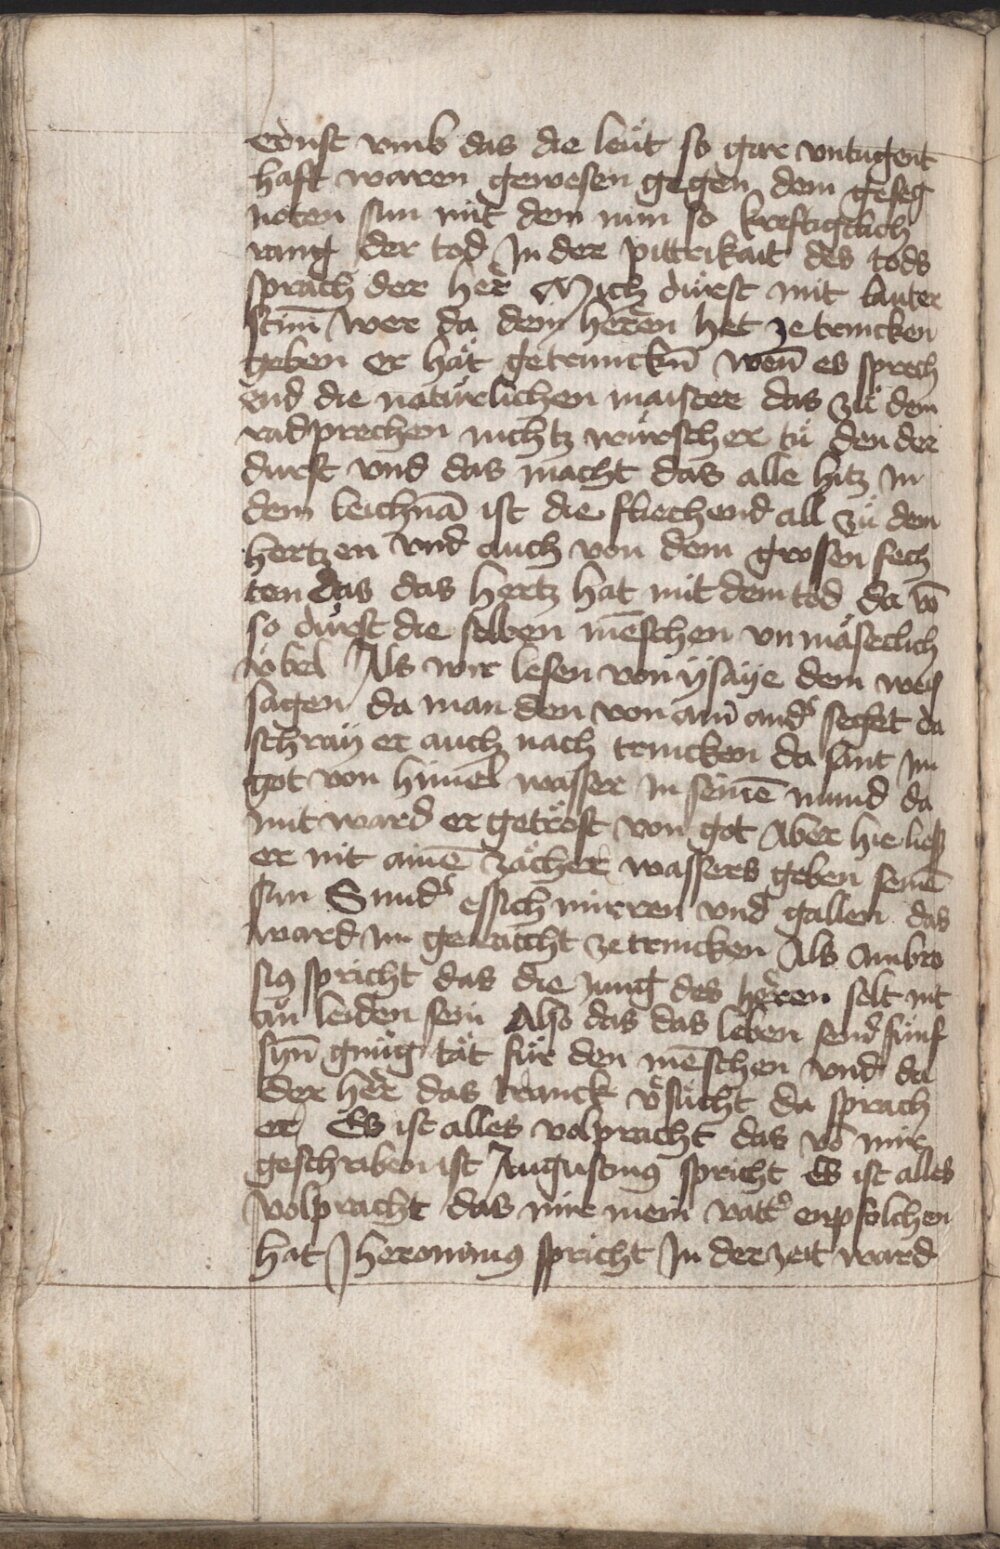 ernst vmb das die leüt so gar vntugent
haft waren gewesen gegen dem geseg
noten sun mit dem nun so kreftigclich
rang der tod In der pittrikait des tods
sprach der her̃ Mich dürst mit lauter
stim̄ wer da dem herren het ze trincken
geben er hät getrunckn̄ wen̄ es sprech
end die natürlichen maister das zü dem
radprechen nichtz wirscher tü den der
durst vnd das macht das alle hitz in
dem leichnā ist die fliechend all zü dem
hertzen vnd auch von dem grossen fech
ten das das hertz hat mit dem tod da vō
so dürst die selben mēschen vn mäseclich
übel Als wir lesen von ysaye dem weis
sagen da man den von ain̄ andͤ seget da
schray er auch nach trincken da sant im
got von himel wasser in seinē mund da
mit ward er getröst von got Aber hie liess
er nit ainē zächer wassers geben seinē
sun Sundͤ essich mirren vnd gallen das
ward im gemacht ze trincken Als Ambro
siꝰ spricht das die zung des herren solt nit
an leiden sein Also das das leben seinͤ fünf
syn̄ gnüg tät für den mēschen vnd da
der her̃ das tranck v̈sücht da sprach
er Es ist alles volpracht das vō mir
geschriben ist Augustinꝰ spricht Es ist alles
volpracht das mir mein vattͤ enpfolchen
hat Iheronimꝰ spricht In der zeit ward